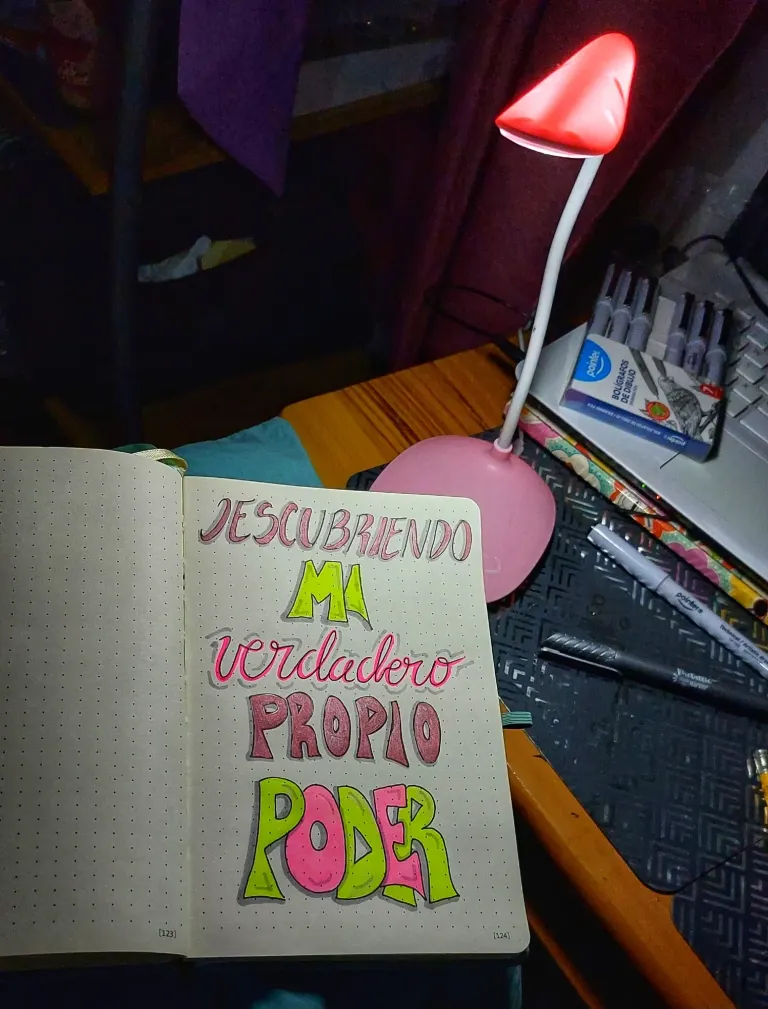 DESCUBRIENDO
MI
verdadero
PROPIO
PODER
[123]
[124]
pointer
BOLÍGRAFOS
DE DIBUJO
pointer